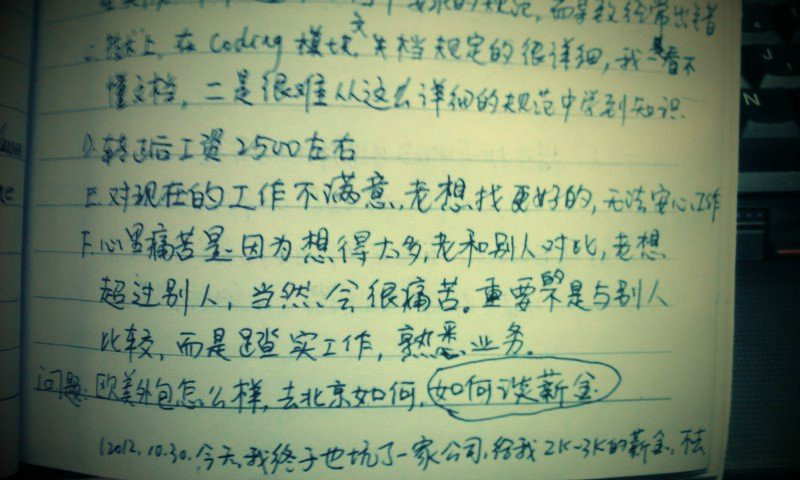 二.技术上,在Coding模块,文档规定的很详细,我一是看不
懂文档,二是很难从这么详细的规范中学到知识.
D.转正后工资2500左右
E.对现在的工作不满意,老想找更好的,无法安心工作
F.心里痛苦是因为想得太多,老和别人对比,老想
超过别人,当然会很痛苦。重要的不是与别人
比较,而是踏实工作,熟悉业务。
问题:欧美外包怎么样,去北京如何,如何谈薪金.
(2012.10.30.今天,我终于也坑了一家公司,给我2K-3K的薪金,不去